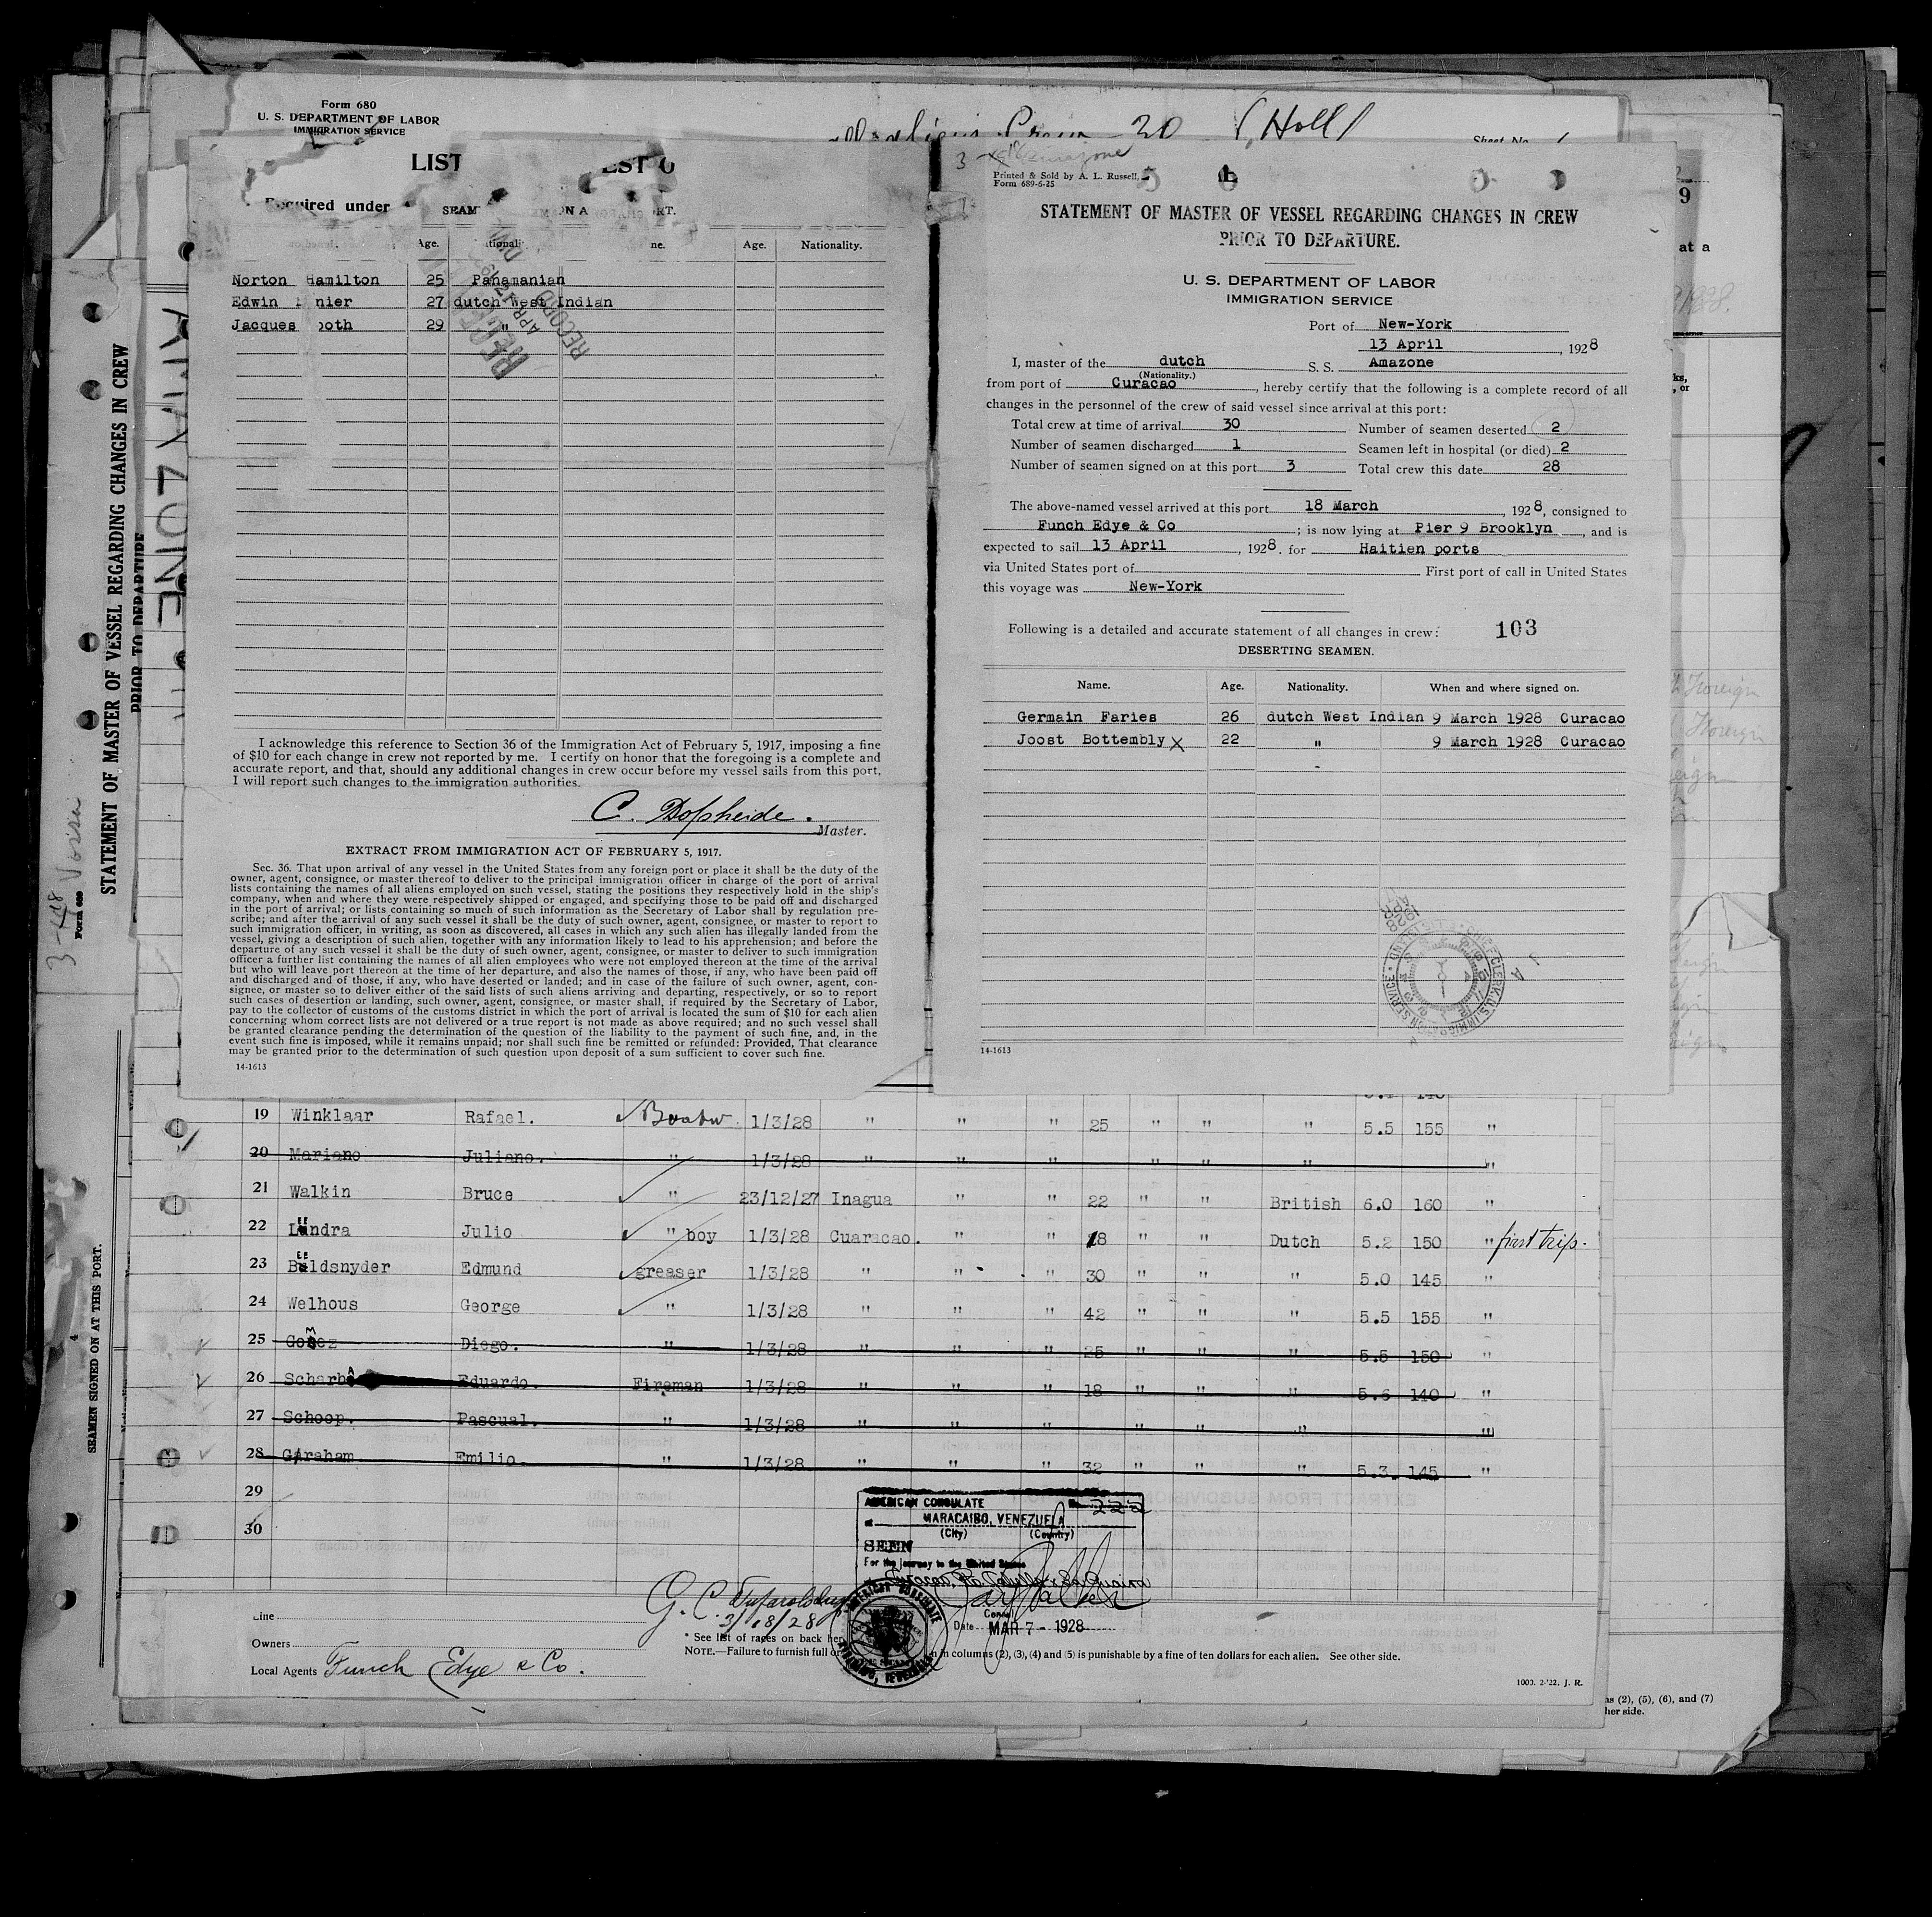 Form 680
U. S. DEPARTMENT OF LABOR
IMMIGRATION SERVICE
20 (Holl)
Sheet No.
LIST
Required under
Age.
Age. Nationality.
Norton Hamilton 25 Panamanian
Edwin nier 27 dutch West Indian
Jacques ooth 29 "
I acknowledge this reference to Section 36 of the Immigration Act of February 5, 1917, imposing a fine
of $10 for each change in crew not reported by me. I certify on honor that the foregoing is a complete and
accurate report, and that, should any additional changes in crew occur before my vessel sails from this port,
I will report such changes to the immigration authorities.
Master.
EXTRACT FROM IMMIGRATION ACT OF FEBRUARY 5, 1917.
Sec. 36. That upon arrival of any vessel in the United States from any foreign port or place it shall be the duty of the
owner, agent, consignee, or master thereof to deliver to the principal immigration officer in charge of the port of arrival
lists containing the names of all aliens employed on such vessel, stating the positions they respectively hold in the ship's
company, when and where they were respectively shipped or engaged, and specifying those to be paid off and discharged
in the port of arrival; or lists containing so much of such information as the Secretary of Labor shall by regulation pre-
scribe; and after the arrival of any such vessel it shall be the duty of such owner, agent, consignee, or master to report to
such immigration officer, in writing, as soon as discovered, all cases in which any such alien has illegally landed from the
vessel, giving a description of such alien, together with any information likely to lead to his apprehension; and before the
departure of any such vessel it shall be the duty of such owner, agent, consignee, or master to deliver to such immigration
officer a further list containing the names of all alien employees who were not employed thereon at the time of the arrival
but who will leave port thereon at the time of her departure, and also the names of those, if any, who have been paid off
and discharged and of those, if any, who have deserted or landed; and in case of the failure of such owner, agent, con-
signee, or master so to deliver either of the said lists of such aliens arriving and departing, respectively, or so to report
such cases of desertion or landing, such owner, agent, consignee, or master shall, if required by the Secretary of Labor,
pay to the collector of customs of the customs district in which the port of arrival is located the sum of $10 for each alien
concerning whom correct lists are not delivered or a true report is not made as above required; and no such vessel shall
be granted clearance pending the determination of the question of the liability to the payment of such fine, and, in the
event such fine is imposed, while it remains unpaid; nor shall such fine be remitted or refunded: Provided, That clearance
may be granted prior to the determination of such question upon deposit of a sum sufficient to cover such fine.
14-1613
Printed & Sold by A. L. Russell,
Form 689-6-25
STATEMENT OF MASTER OF VESSEL REGARDING CHANGES IN CREW
PRIOR TO DEPARTURE.
U. S. DEPARTMENT OF LABOR
IMMIGRATION SERVICE
Port of New-York
13 April, 1928
I, master of the dutch S. S. Amazone
(Nationality.)
from port of Curacao, hereby certify that the following is a complete record of all
changes in the personnel of the crew of said vessel since arrival at this port:
Total crew at time of arrival 30 Number of seamen deserted 2
Number of seamen discharged 1 Seamen left in hospital (or died) 2
Number of seamen signed on at this port 3 Total crew this date 28
The above-named vessel arrived at this port 18 March, 1928, consigned to
Funch Edye & Co; is now lying at Pier 9 Brooklyn, and is
expected to sail 13 April, 1928. for Haitien ports
via United States port of First port of call in United States
this voyage was New-York
Following is a detailed and accurate statement of all changes in crew: 103
DESERTING SEAMEN.
Name. Age. Nationality. When and where signed on.
Germain Faries 26 dutch West Indian 9 March 1928 Curacao
Joost Bottembly X 22 " 9 March 1928 Curacao
14-1613
STATEMENT OF MASTER OF VESSEL REGARDING CHANGES IN CREW
PRIOR TO DEPARTURE
AMAZONE
SEAMEN SIGNED ON AT THIS PORT.
19 Winklaar Rafael. 1/3/28 " " " 25 " " " 5.5 155 "
20 Mariano Juliano. " 1/3/28 " " " " " " "
21 Walkin Bruce " 23/12/27 Inagua " " 22 " " British 6.0 160 "
22 Lundra Julio " boy 1/3/28 Cuaracao. " " 18 " " Dutch 5.2 150 " first trip.
23 Buldsnyder Edmund greaser 1/3/28 " " " 30 " " " 5.0 145 "
24 Welhous George " 1/3/28 " " " 42 " " " 5.5 155 "
25 Gomez Diego. " 1/3/28 " " " 25 " " " 5.5 150 "
26 Scharba Eduardo. Fireman 1/3/28 " " " 18 " " " 5.6 140 "
27 Schoop. Pascual. " 1/3/28 " " " " " " "
28 Graham. Emilio. " 1/3/28 " " " 32 " " " 5.3. 145 "
29
30
AMERICAN CONSULATE 222
at MARACAIBO, VENEZUELA
(City) (Country)
SEEN
For the journey to the United States
Consul
Date MAR 7 - 1928
3/18/28
Line
Owners
Local Agents Funch Edye & Co.
* See list of races on back her
NOTE.—Failure to furnish full or n in columns (2), (3), (4) and (5) is punishable by a fine of ten dollars for each alien. See other side.
1000. 2-'22. J. R.
ns (2), (5), (6), and (7)
her side.